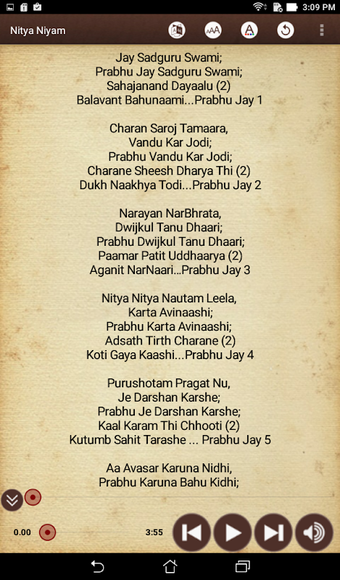 3:09 PM
Nitya Niyam
AAA
A
Jay Sadguru Swami;
Prabhu Jay Sadguru Swami;
Sahajanand Dayaalu (2)
Balavant Bahunaami...Prabhu Jay 1
Charan Saroj Tamaara,
Vandu Kar Jodi;
Prabhu Vandu Kar Jodi;
Charane Sheesh Dharya Thi (2)
Dukh Naakhya Todi...Prabhu Jay 2
Narayan NarBhrata,
Dwijkul Tanu Dhaari;
Prabhu Dwijkul Tanu Dhaari;
Paamar Patit Uddhaarya (2)
Aganit NarNaari...Prabhu Jay 3
Nitya Nitya Nautam Leela,
Karta Avinaashi;
Prabhu Karta Avinaashi;
Adsath Tirth Charane (2)
Koti Gaya Kaashi...Prabhu Jay 4
Purushotam Pragat Nu,
Je Darshan Karshe;
Prabhu Je Darshan Karshe;
Kaal Karam Thi Chhooti (2)
Kutumb Sahit Tarashe ... Prabhu Jay 5
Aa Avasar Karuna Nidhi,
Prabhu Karuna Bahu Kidhi;
0.00
3:55